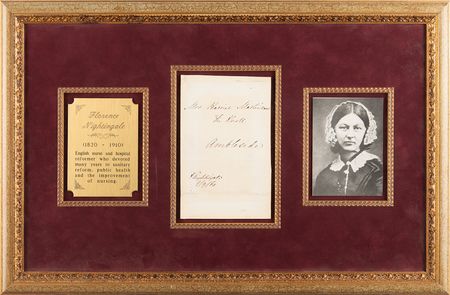 Florence
Nightingale
(1820 - 1910)
English nurse and hospital
reformer who devoted
many years to sanitary
reform, public health
and the improvement
of nursing.
Mrs
Ambleside